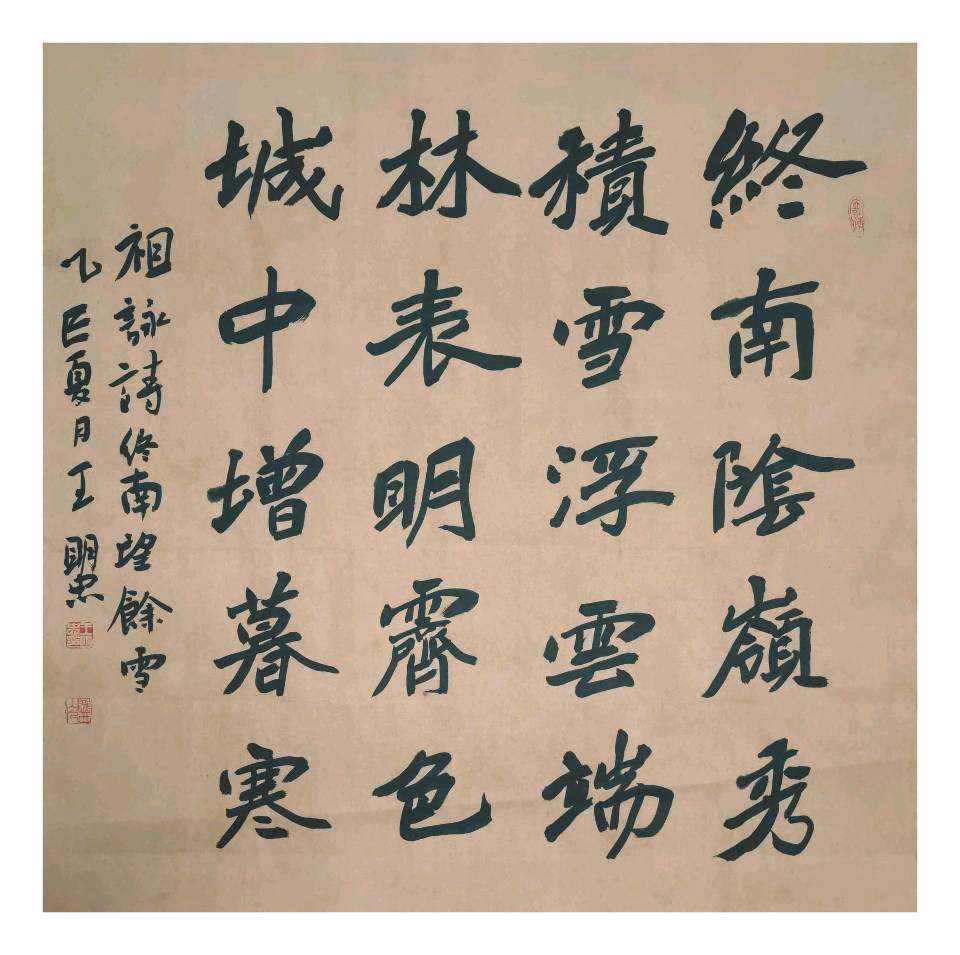 終南陰嶺秀
積雪浮雲端
林表明霽色
城中增暮寒
祖詠詩終南望餘雪
乙巳夏月王